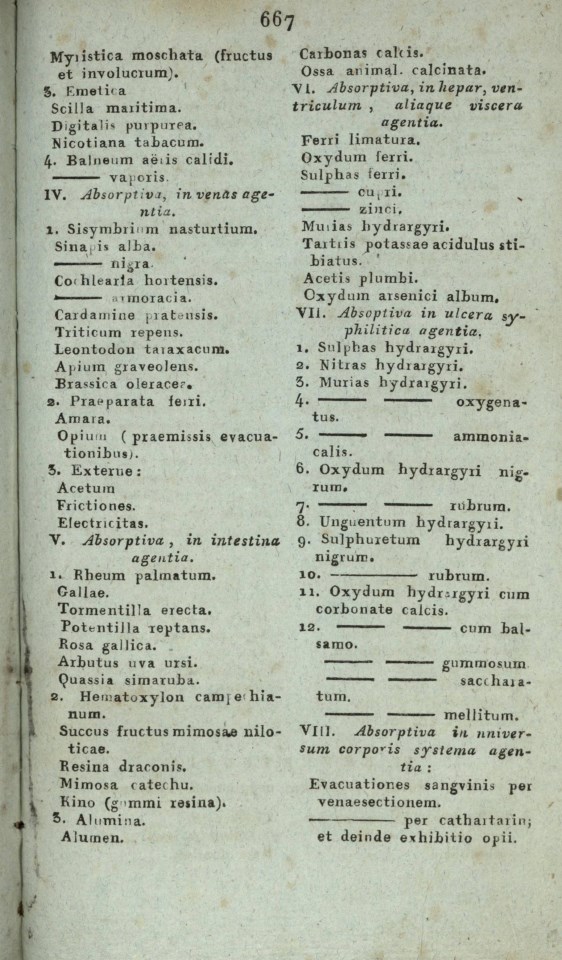 667
Myristica moschata (fructus
et involucrum).
3. Emetica
Scilla maritima.
Digitalis purpurea.
Nicotiana tabacum.
4. Balneum aëris calidi.
——— vaporis.
IV. Absorptiva, in venas age-
ntia.
1. Sisymbrium nasturtium.
Sinapis alba.
——— nigra.
Cochlearia hortensis.
——— armoracia.
Cardamine pratensis.
Triticum repens.
Leontodon taraxacum.
Apium graveolens.
Brassica oleracea.
2. Praeparata ferri.
Amara.
Opium ( praemissis evacua-
tionibus).
3. Externe:
Acetum
Frictiones.
Electricitas.
V. Absorptiva, in intestina
agentia.
1. Rheum palmatum.
Gallae.
Tormentilla erecta.
Potentilla reptans.
Rosa gallica.
Arbutus uva ursi.
Quassia simaruba.
2. Hematoxylon campechia-
num.
Succus fructus mimosae nilo-
ticae.
Resina draconis.
Mimosa catechu.
Kino (gummi resina).
3. Alumina.
Alumen.
Carbonas calcis.
Ossa animal. calcinata.
VI. Absorptiva, in hepar, ven-
triculum, aliaque viscera
agentia.
Ferri limatura.
Oxydum ferri.
Sulphas ferri.
——— cupri.
——— zinci.
Murias hydrargyri.
Tartris potassae acidulus sti-
biatus.
Acetis plumbi.
Oxydum arsenici album.
VII. Absoptiva in ulcera sy-
philitica agentia.
1. Sulphas hydrargyri.
2. Nitras hydrargyri.
3. Murias hydrargyri.
4. ——— ——— oxygena-
tus.
5. ——— ——— ammonia-
calis.
6. Oxydum hydrargyri nig-
rum.
7. ——— ——— rubrum.
8. Unguentum hydrargyri.
9. Sulphuretum hydrargyri
nigrum.
10. ——— rubrum.
11. Oxydum hydrargyri cum
corbonate calcis.
12. ——— ——— cum bal-
samo.
——— ——— gummosum
——— ——— sacchara-
tum.
——— ——— mellitum.
VIII. Absorptiva in univer-
sum corporis systema agen-
tia :
Evacuationes sangvinis per
venaesectionem.
——— per cathartarin;
et deinde exhibitio opii.